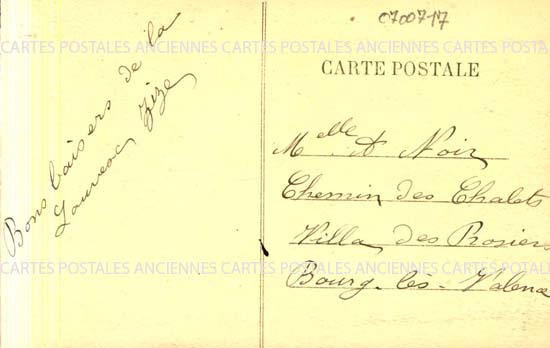 0700717
CARTES POSTALES ANCIENNES CARTES POSTALES ANCIENNES CARTES POSTALES ANCIENNES
CARTE POSTALE
Bons baisers de la
Zize
Melle A Noir
Chemin des Chalets
Villa des Rosiers
Bourg-lès-Valence
CARTES POSTALES ANCIENNES CARTES POSTALES ANCIENNES CARTES POSTALES ANCIENNES